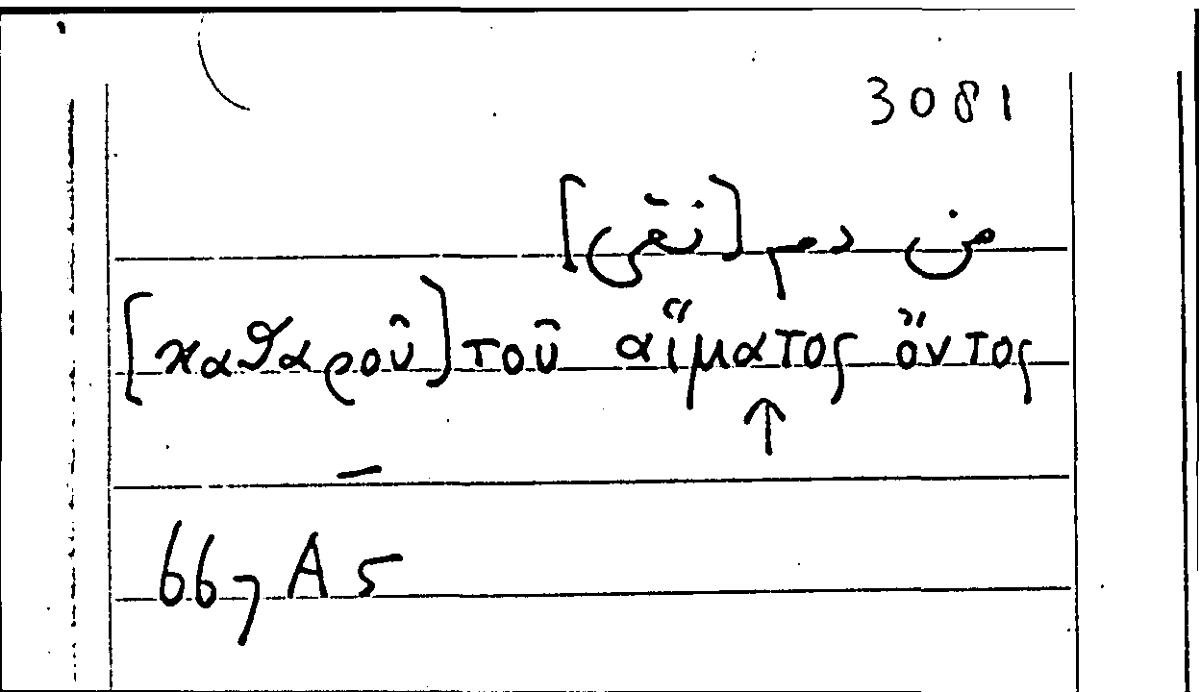 3081
من دم [نقى]
[καθαροῦ] τοῦ αἵματος ὄντος
↑
667 A 5